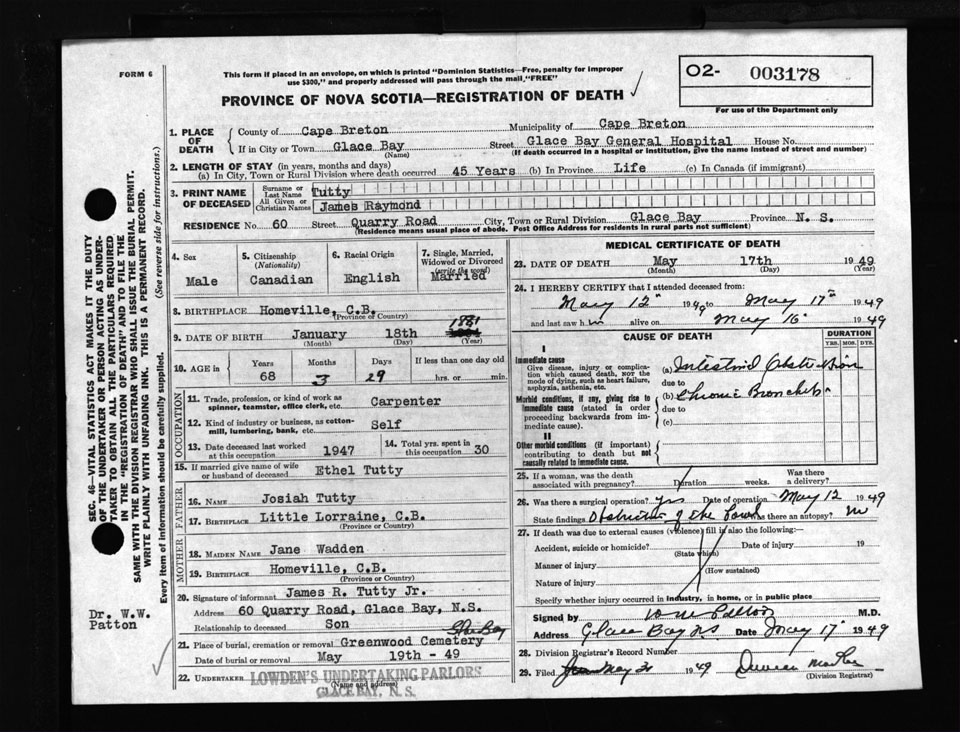 FORM 6
This form if placed in an envelope, on which is printed "Dominion Statistics—Free, penalty for improper
use $300," and properly addressed will pass through the mail "FREE"
PROVINCE OF NOVA SCOTIA—REGISTRATION OF DEATH ✓
02- 003178
For use of the Department only
1. PLACE OF DEATH { County of Cape Breton Municipality of Cape Breton
If in City or Town Glace Bay Street Glace Bay General Hospital House No.
(Name) (If death occurred in a hospital or institution, give the name instead of street and number)
2. LENGTH OF STAY (in years, months and days)
(a) In City, Town or Rural Division where death occurred 45 Years (b) In Province Life (c) In Canada (if immigrant)
3. PRINT NAME OF DECEASED { Surname or Last Name Tutty
All Given or Christian Names James Raymond
RESIDENCE No. 60 Street Quarry Road City, Town or Rural Division Glace Bay Province N. S.
(Residence means usual place of abode. Post Office Address for residents in rural parts not sufficient)
4. Sex Male
5. Citizenship (Nationality) Canadian
6. Racial Origin English
7. Single, Married, Widowed or Divorced (write the word) Married
8. BIRTHPLACE Homeville, C.B.
(Province or Country)
9. DATE OF BIRTH January 18th 1881
(Month) (Day) (Year)
10. AGE in { Years 68 Months 3 Days 29 If less than one day old hrs. or min.
OCCUPATION
11. Trade, profession, or kind of work as spinner, teamster, office clerk, etc. Carpenter
12. Kind of industry or business, as cotton-mill, lumbering, bank, etc. Self
13. Date deceased last worked at this occupation 1947
14. Total yrs. spent in this occupation 30
15. If married give name of wife or husband of deceased Ethel Tutty
FATHER
16. NAME Josiah Tutty
17. BIRTHPLACE Little Lorraine, C.B.
(Province or Country)
MOTHER
18. MAIDEN NAME Jane Wadden
19. BIRTHPLACE Homeville, C.B.
(Province or Country)
20. Signature of informant James R. Tutty Jr.
Address 60 Quarry Road, Glace Bay, N.S.
Relationship to deceased Son
21. Place of burial, cremation or removal Greenwood Cemetery
Date of burial or removal May 19th - 49
22. UNDERTAKER LOWDEN'S UNDERTAKING PARLORS
(Name and address)
GLACE BAY, N. S.
MEDICAL CERTIFICATE OF DEATH
23. DATE OF DEATH May 17th 1949
(Month) (Day) (Year)
24. I HEREBY CERTIFY that I attended deceased from:
May 12" 1949 to May 17" 1949
and last saw him alive on May 16" 1949
CAUSE OF DEATH
DURATION
YRS. MOS. DYS.
I
Immediate cause
Give disease, injury or complication which caused death, NOT the mode of dying, such as heart failure, asphyxia, asthenia, etc.
(a) Intestinal Obstruction
due to
Morbid conditions, if any, giving rise to immediate cause (stated in order proceeding backwards from immediate cause).
(b) Chronic Bronchitis
due to
(c)
II
Other morbid conditions (if important) contributing to death but not causally related to immediate cause.
25. If a woman, was the death associated with pregnancy? Duration weeks. Was there a delivery?
26. Was there a surgical operation? yes Date of operation May 12 1949
State findings Obstruction of the bowel Was there an autopsy? no
27. If death was due to external causes (violence) fill in also the following:
Accident, suicide or homicide? Date of injury 19
(State which)
Manner of injury
(How sustained)
Nature of injury
Specify whether injury occurred in industry, in home, or in public place
Signed by W W Patton M.D.
Address Glace Bay N S Date May 17" 1949
28. Division Registrar's Record Number
29. Filed May 21 1949
(Division Registrar)
SEC. 46—VITAL STATISTICS ACT MAKES IT THE DUTY
OF THE UNDERTAKER OR PERSON ACTING AS UNDER-
TAKER TO OBTAIN ALL THE PARTICULARS REQUIRED
IN THE "REGISTRATION OF DEATH" AND TO FILE THE
SAME WITH THE DIVISION REGISTRAR WHO SHALL ISSUE THE BURIAL PERMIT.
WRITE PLAINLY WITH UNFADING INK. THIS IS A PERMANENT RECORD.
Every item of information should be carefully supplied. (See reverse side for instructions.)
Dr. W.W.
Patton
✓